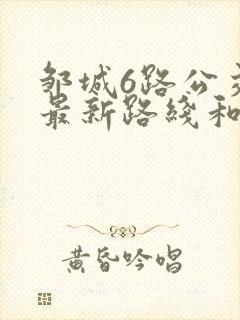 邹城6路公
最新路线和
黄昏吟唱